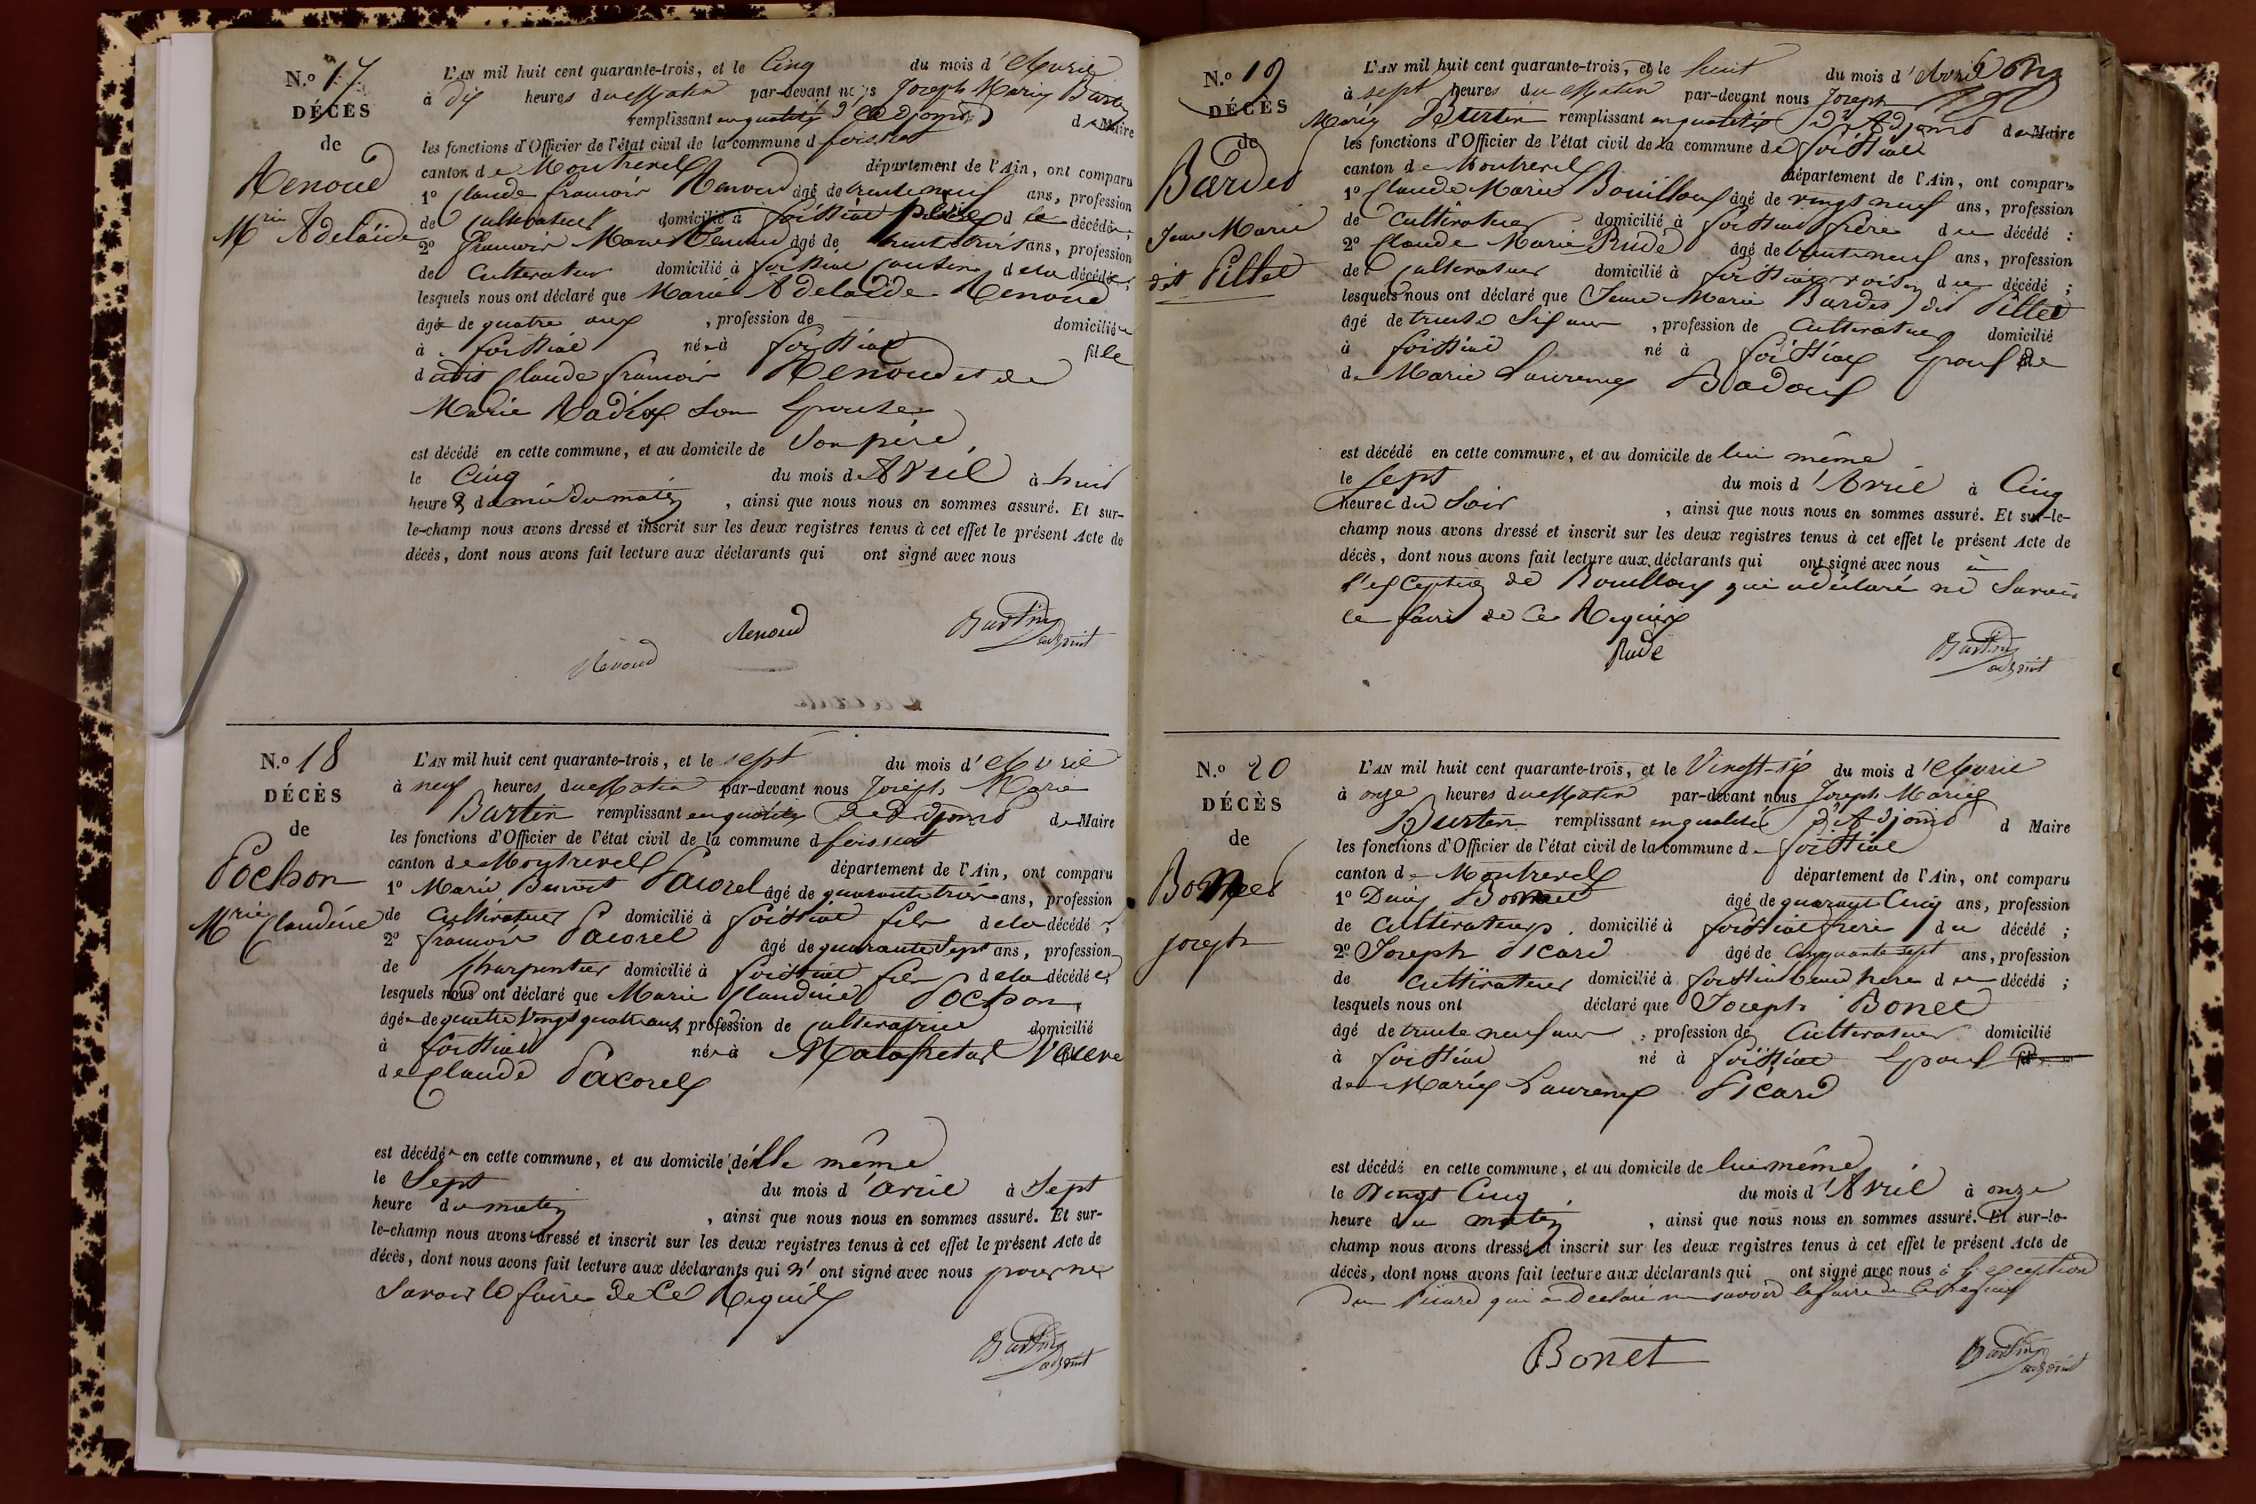 N.o 17
DÉCÈS
de
Renoud
Mrie Adelaïde
L'AN mil huit cent quarante-trois, et le Cinq du mois d'Avril
à dix heures du Matin par-devant nous Joseph Marie Burtin
remplissant en qualité d'adjoint de Maire
les fonctions d'Officier de l'état civil de la commune d foissiat
canton de Montrevel département de l'Ain, ont comparu
1o Claude françois Renoud âgé de trente neuf ans, profession
de Cultivateur domicilié à foissiat père de la décédée;
2o françois Marie Renoud âgé de trente trois ans, profession
de Cultivateur domicilié à foissiat cousin de la décédée;
lesquels nous ont déclaré que Marie Adelaide Renoud
âgée de quatre ans, profession de domiciliée
à foissiat née à foissiat fille
dudit Claude françois Renoud et de
Marie Radix son Epouse
est décédé en cette commune, et au domicile de son père,
le Cinq du mois d'Avril à huit
heure & demie du matin, ainsi que nous nous en sommes assuré. Et sur-
le-champ nous avons dressé et inscrit sur les deux registres tenus à cet effet le présent Acte de
décès, dont nous avons fait lecture aux déclarants qui ont signé avec nous
Renoud
Renoud
Burtin
adjoint
N.o 18
DÉCÈS
de
Pochon
Mrie Claudine
L'AN mil huit cent quarante-trois, et le sept du mois d'Avril
à neuf heures du Matin par-devant nous Joseph Marie
Burtin remplissant en qualité d'adjoint de Maire
les fonctions d'Officier de l'état civil de la commune d foissiat
canton de Montrevel département de l'Ain, ont comparu
1o Marie Benoit Pacorel âgé de quarante trois ans, profession
de Cultivateur domicilié à foissiat fils de la décédé;
2o françois Pacorel âgé de quarante sept ans, profession
de Charpentier domicilié à foissiat fils de la décédée;
lesquels nous ont déclaré que Marie Claudine Pochon
âgée de quatre vingt quatre ans, profession de Cultivatrice domicilié
à foissiat née à Malafretaz Veuve
de Claude Pacorel
est décédée en cette commune, et au domicile d'elle même
le Sept du mois d'avril à Sept
heure du matin, ainsi que nous nous en sommes assuré. Et sur-
le-champ nous avons dressé et inscrit sur les deux registres tenus à cet effet le présent Acte de
décès, dont nous avons fait lecture aux déclarants qui n'ont signé avec nous pour ne
savoir le faire de ce Requis
Burtin
adjoint
N.o 19
DÉCÈS
de
Bardet
Jean Marie
dit Pillet
L'AN mil huit cent quarante-trois, et le huit du mois d'Avril
à sept heures du Matin par-devant nous Joseph
Marie Burtin remplissant en qualité d'Adjoint de Maire
les fonctions d'Officier de l'état civil de la commune de foissiat
canton de Montrevel département de l'Ain, ont comparu
1o Claude Marie Bouilloux âgé de vingt neuf ans, profession
de Cultivateur domicilié à foissiat frère du décédé;
2o Claude Marie Rude âgé de trente neuf ans, profession
de Cultivateur domicilié à foissiat voisin du décédé;
lesquels nous ont déclaré que Jean Marie Bardet dit Pillet
âgé de trente six ans, profession de Cultivateur domicilié
à foissiat né à foissiat Epoux
de Marie Laurence Badoux
est décédé en cette commune, et au domicile de lui même
le sept du mois d'Avril à Cinq
heures du soir, ainsi que nous nous en sommes assuré. Et sur-le-
champ nous avons dressé et inscrit sur les deux registres tenus à cet effet le présent Acte de
décès, dont nous avons fait lecture aux déclarants qui ont signé avec nous à
l'exception de Bouilloux qui a déclaré ne savoir
le faire de ce Requis
Rude
Burtin
adjoint
N.o 20
DÉCÈS
de
Bonet
joseph
L'AN mil huit cent quarante-trois, et le Vingt-six du mois d'Avril
à onze heures du Matin par-devant nous Joseph Marie
Burtin remplissant en qualité d'Adjoint d Maire
les fonctions d'Officier de l'état civil de la commune de foissiat
canton de Montrevel département de l'Ain, ont comparu
1o Denis Bonnet âgé de quarante Cinq ans, profession
de Cultivateur domicilié à foissiat frère du décédé;
2o Joseph Picard âgé de Cinquante sept ans, profession
de Cultivateur domicilié à foissiat beau père du décédé;
lesquels nous ont déclaré que Joseph Bonet
âgé de trente neuf ans, profession de Cultivateur domicilié
à foissiat né à foissiat Epoux
de Marie Laurence Picard
est décédé en cette commune, et au domicile de lui même
le vingt Cinq du mois d'Avril à onze
heure du matin, ainsi que nous nous en sommes assuré. Et sur-le-
champ nous avons dressé et inscrit sur les deux registres tenus à cet effet le présent Acte de
décès, dont nous avons fait lecture aux déclarants qui ont signé avec nous à l'exception
du Picard qui a Declaré ne savoir le faire de ce requis
Bonet
Burtin
adjoint